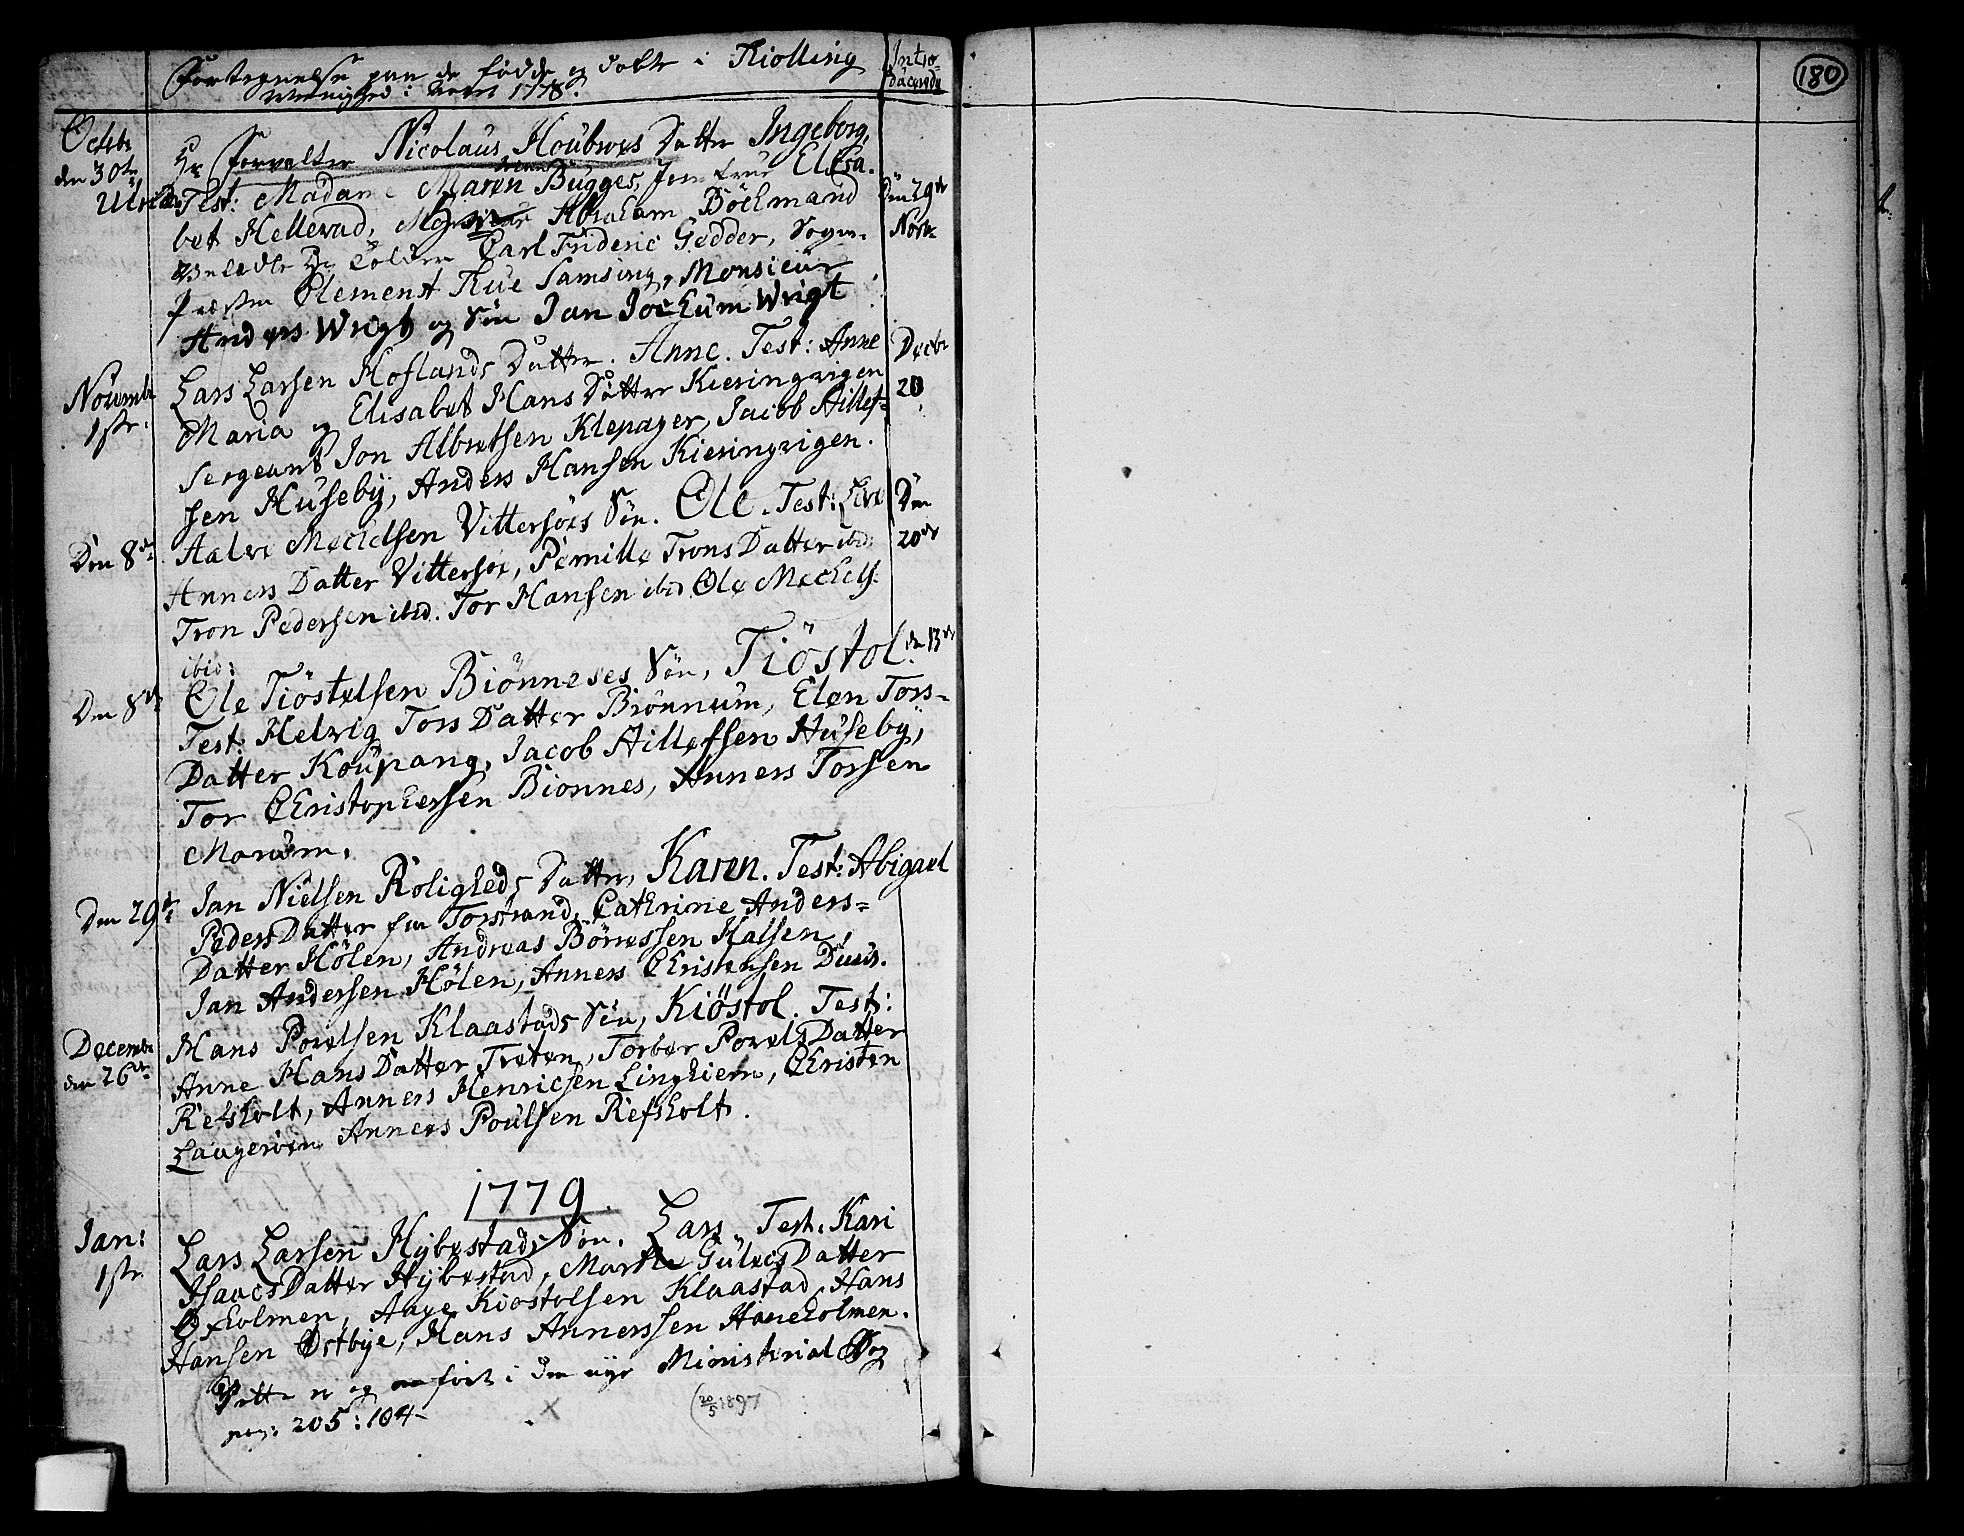 Fortegnelse paa de fødde og døbte i Kiølling
Menighed i Aaret 1778.
Intro-
ducerede
180
Octobr
den 30te
Hr Forvalter Nicolaus Houbroes Datter Ingeborg,
Test: Madame Maren Bugges, Jomfrue Elisa-
bet Hellerad, Monsieur Abraham Böckmand
Carl Frideric Gedder, Sogne-
Præsten Clement Rue Samsing, Monsieur
Anders Wrigt og Søn Jan Jochum Wrigt
Den 29de
Novr
Novembr
1ste.
Lars Larsen Hoflands Datter. Anne. Test: Anne
Maria og Elisabet Hans Datter Kieringvigen
Sergeant Jon Albretsen Klepager, Jacob Hillef-
sen Huseby, Anders Hansen Kieringvigen.
Decbr
20
Den 8de
Halvo Mechelsen Vittersøes Søn. Ole. Test: Live
Anners Datter Vittersøe, Pernille Trons Datter ibid:
Tron Pedersen ibid. Tor Hansen ibid Ole Mechels.
ibid:
Den
20de
Den 8de
Ole Tiöstelsen Biönneses Søn, Tiöstol.
Test: Helvig Tors Datter Biönnum, Elen Tors-
Datter Koupang, Jacob Hillefsen Huseby,
Tor Christophersen Bionnes, Anners Torsen
Marum.
den 13de
Den 29de
Jan Nielsen Roligheds Datter, Karen. Test: Abigael
Peders Datter fra Torstrand, Cathrine Anders-
Datter Hölen, Andreas Börresen Kalsen,
Jan Andersen Hölen, Anners Christensen Duus.
Decembr
den 26de
Hans Povelsen Klaastads Søn, Kiöstol. Test:
Anne Hans Datter Treten, Torber Povels Datter
Refsholt, Anners Henricsen Linghiem, Christen
Laugerøen Anners Poulsen Refsholt.
1779.
Jan:
1ste
Lars Larsen Hybestads Søn. Lars Test: Kari
Isaacs Datter Hybestad, Marthe Gulics Datter
Oxholmen, Aage Kiostolsen Klaastad, Hans
Hansen Østbye, Hans Annerssen Haneholmen.
Dette er ogført i den nye Ministerial Bog
pag: 205:104-
(20/5 1897)